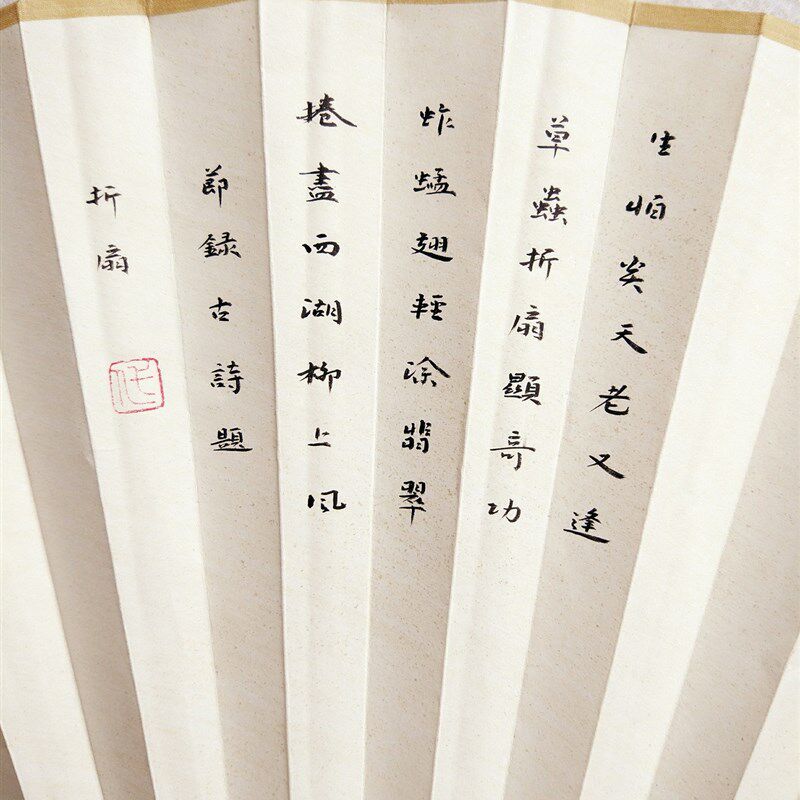 生怕炎天老又逢
草蟲折扇顯奇功
蚱蜢翅輕涂翡翠
捲盡西湖柳上風
節録古詩題
折扇